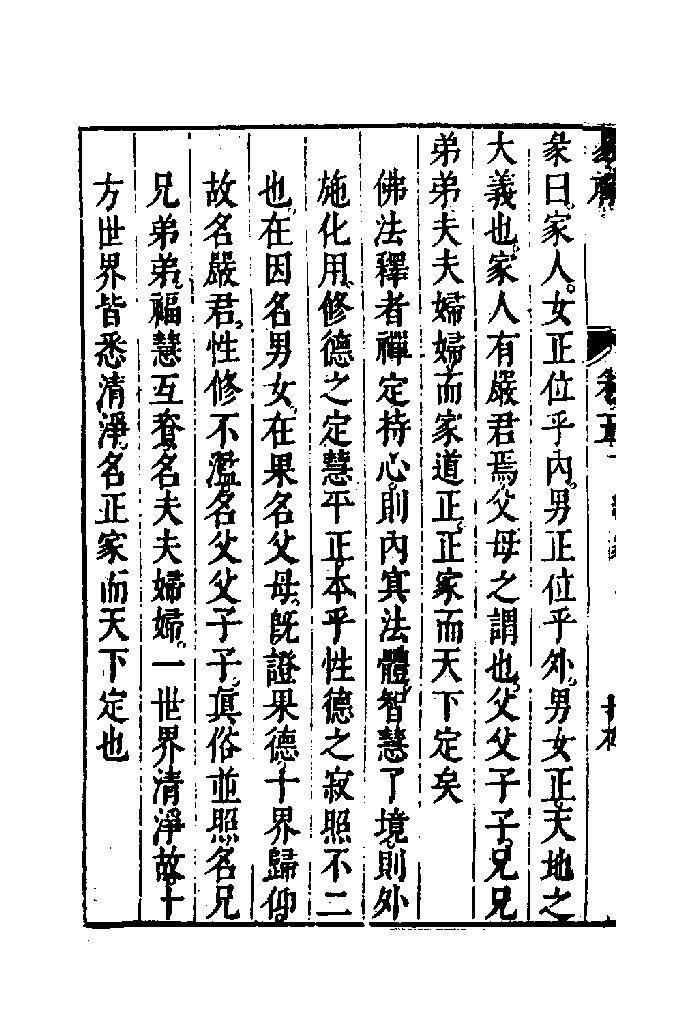 彖曰家人。女正位乎內。男正位乎外。男女正。天地之
大義也。家人有嚴君焉。父母之謂也。父父子子。兄兄
弟弟。夫夫婦婦。而家道正。正家而天下定矣
佛法釋者。禪定持心。則內冥法體。智慧了境。則外
施化用。修德之定慧平正。本乎性德之寂照不二
也。在因名男女。在果名父母。旣證果德。十界歸仰。
故名嚴君。性修不濫。名父父子子。眞俗並照。名兄
兄弟弟。福慧互資。名夫夫婦婦。一世界清淨故。十
方世界皆悉清淨。名正家而天下定也